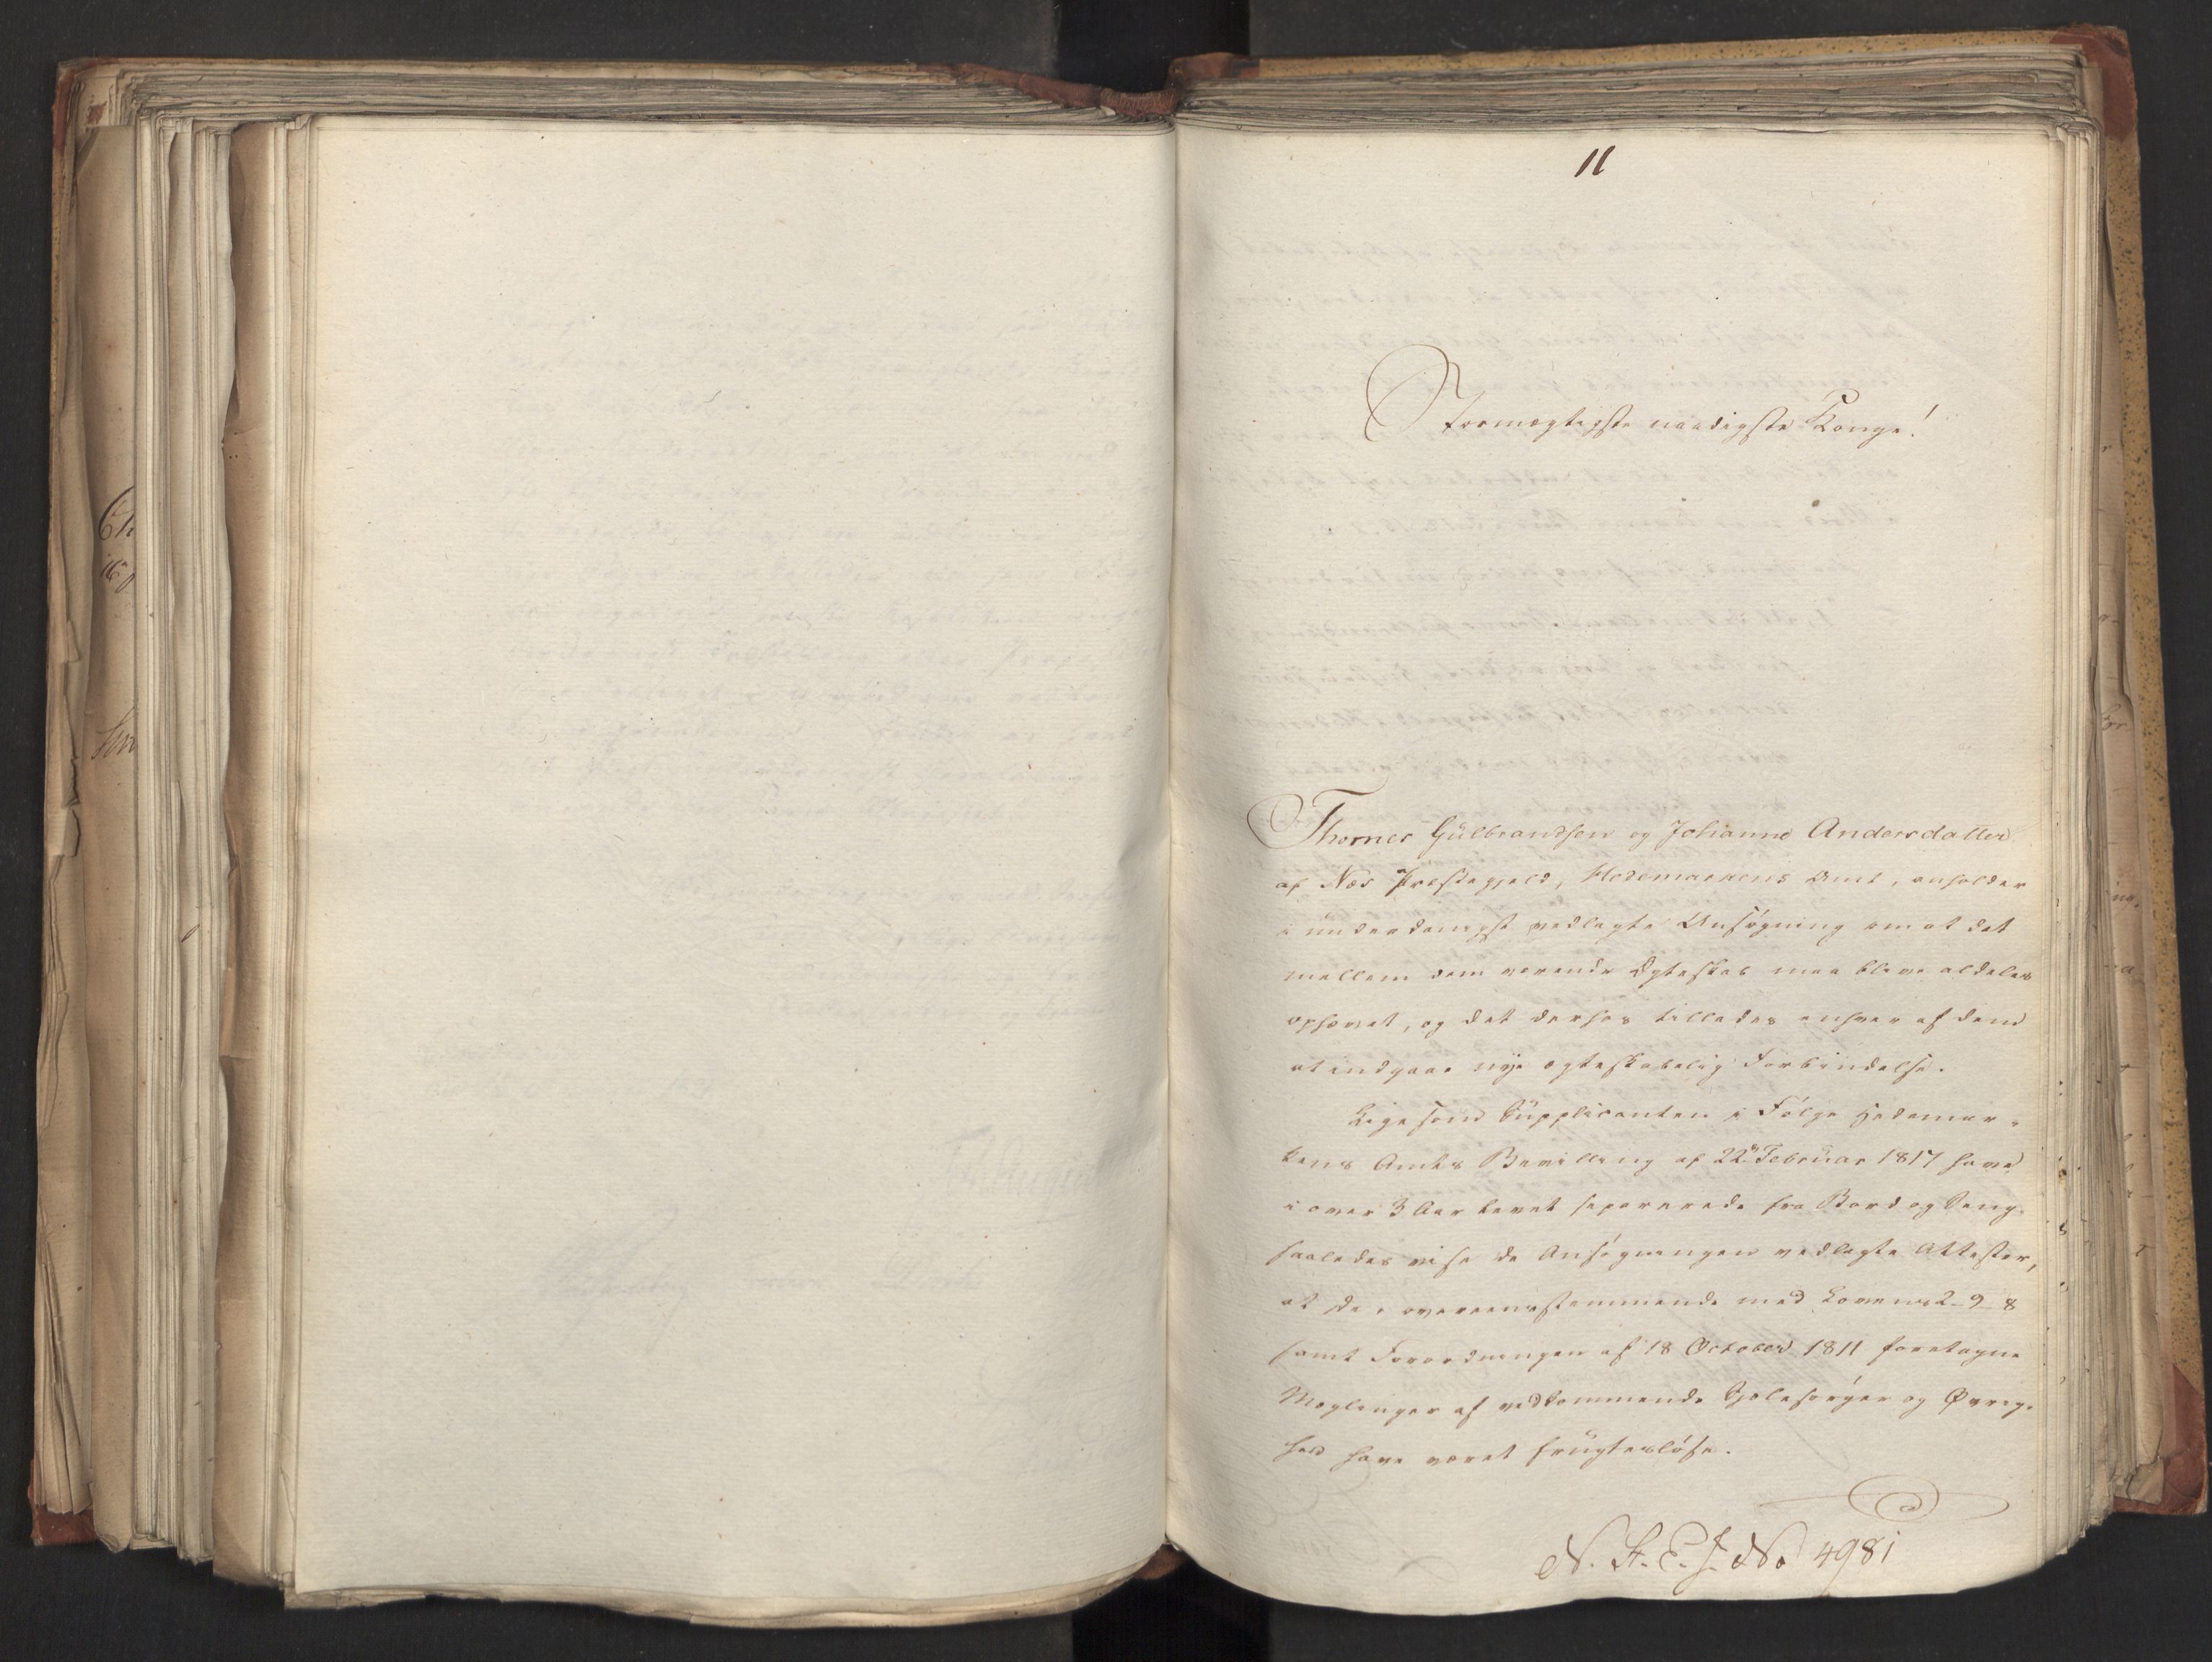 11
Stormægtigste naadigste Konge!
Thornes Gülbrandsen og Johanne Andersdatter
af Næs Præstegjeld, Hedemarkens Amt, anholder
i underdanigst vedlagte Ansøgning om at det
mellem dem værende Ægteskab maa blive aldeles
ophævet, og det derhos tillades enhver af dem
at indgaae nye ægteskabelig Forbindelse.
Ligesom Süpplicanten i Følge Hedemar-
kens Amts Bevilling af 22de Februar 1817 have
i over 3 Aar levet separerede fra Bord og Seng,
saaledes vise de Ansøgningen vedlagte Attester,
at de i overeensstemmende med Lovens 2-9-8
samt Forordningen af 18 October 1811 foretagne
Mæglinger af vedkommende Sjælesørger og Øvrig-
hed have været frugtesløse.
N. St. E. J. No 4981